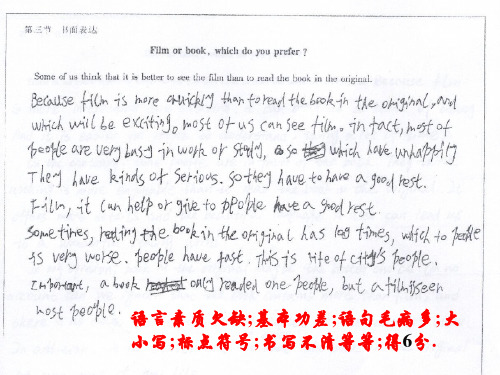 第三节 书面表达
Film or book, which do you prefer?
Some of us think that it is better to see the film than to read the book in the original.
Because film is more quickly than to read the book in the original, and
which will be exciting。most of us can see film。in fact, most of
people are very busy in work or study, so which have unhappily
They have kinds of serious. so they have to have a good rest.
Film, it can help or give to people have a good rest.
Sometimes, reading the book in the original has log times, which to people
is very worse. people have fast. This is life of city's people.
Important, a book only readed one people, but a film is seen
most people.
语言素质欠缺;基本功差;语句毛病多;大
小写;标点符号;书写不清等等;得6分.